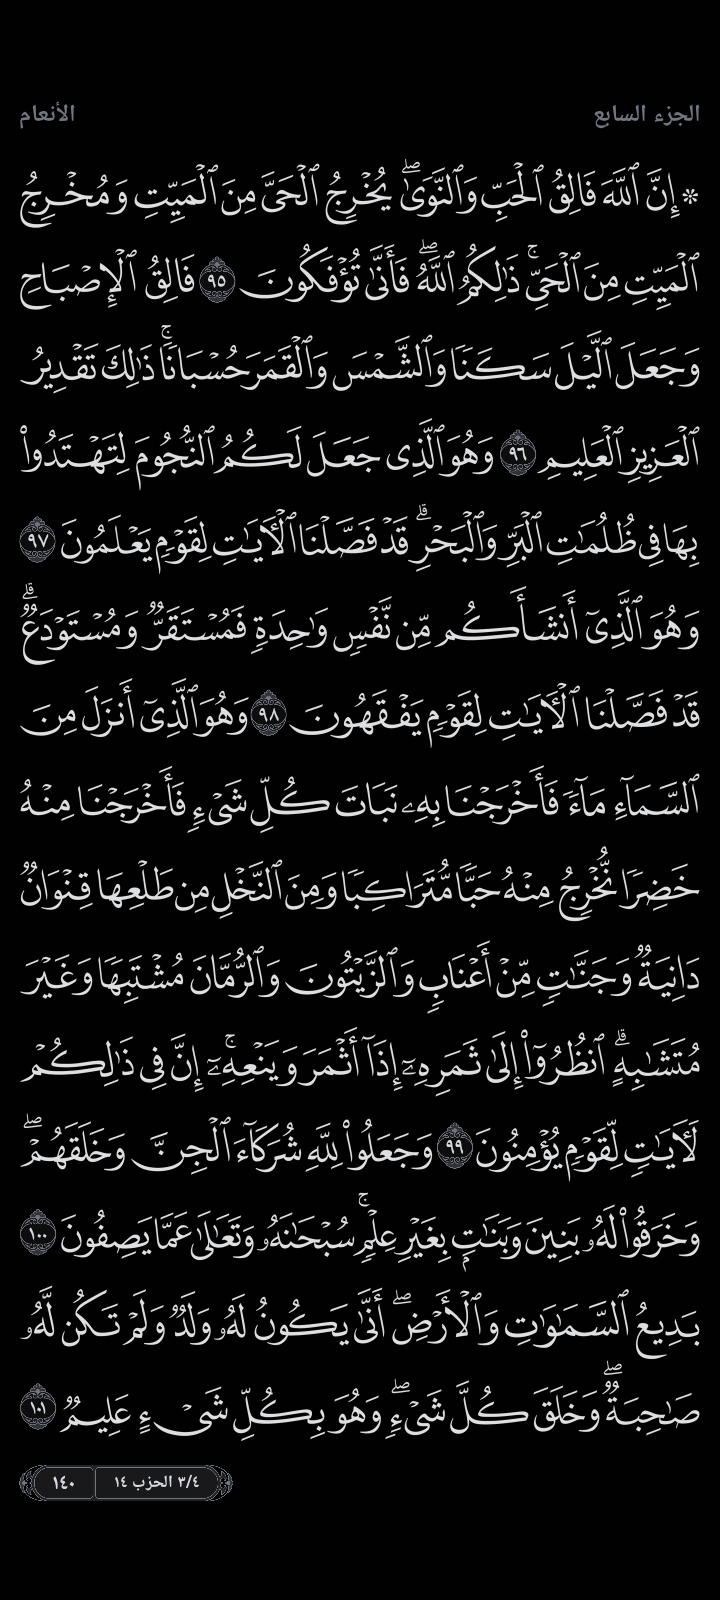 الجزء السابع
الأنعام
۞ إِنَّ ٱللَّهَ فَالِقُ ٱلْحَبِّ وَٱلنَّوَىٰۖ يُخْرِجُ ٱلْحَىَّ مِنَ ٱلْمَيِّتِ وَمُخْرِجُ
ٱلْمَيِّتِ مِنَ ٱلْحَىِّۚ ذَٰلِكُمُ ٱللَّهُۖ فَأَنَّىٰ تُؤْفَكُونَ ٩٥ فَالِقُ ٱلْإِصْبَاحِ
وَجَعَلَ ٱلَّيْلَ سَكَنًا وَٱلشَّمْسَ وَٱلْقَمَرَ حُسْبَانًاۚ ذَٰلِكَ تَقْدِيرُ
ٱلْعَزِيزِ ٱلْعَلِيمِ ٩٦ وَهُوَ ٱلَّذِى جَعَلَ لَكُمُ ٱلنُّجُومَ لِتَهْتَدُوا۟
بِهَا فِى ظُلُمَٰتِ ٱلْبَرِّ وَٱلْبَحْرِۗ قَدْ فَصَّلْنَا ٱلْـَٔايَٰتِ لِقَوْمٍ يَعْلَمُونَ ٩٧
وَهُوَ ٱلَّذِىٓ أَنشَأَكُم مِّن نَّفْسٍ وَٰحِدَةٍ فَمُسْتَقَرٌّ وَمُسْتَوْدَعٌۗ
قَدْ فَصَّلْنَا ٱلْـَٔايَٰتِ لِقَوْمٍ يَفْقَهُونَ ٩٨ وَهُوَ ٱلَّذِىٓ أَنزَلَ مِنَ
ٱلسَّمَآءِ مَآءً فَأَخْرَجْنَا بِهِۦ نَبَاتَ كُلِّ شَىْءٍ فَأَخْرَجْنَا مِنْهُ
خَضِرًا نُّخْرِجُ مِنْهُ حَبًّا مُّتَرَاكِبًا وَمِنَ ٱلنَّخْلِ مِن طَلْعِهَا قِنْوَانٌ
دَانِيَةٌ وَجَنَّٰتٍ مِّنْ أَعْنَابٍ وَٱلزَّيْتُونَ وَٱلرُّمَّانَ مُشْتَبِهًا وَغَيْرَ
مُتَشَٰبِهٍۗ ٱنظُرُوٓا۟ إِلَىٰ ثَمَرِهِۦٓ إِذَآ أَثْمَرَ وَيَنْعِهِۦٓۚ إِنَّ فِى ذَٰلِكُمْ
لَـَٔايَٰتٍ لِّقَوْمٍ يُؤْمِنُونَ ٩٩ وَجَعَلُوا۟ لِلَّهِ شُرَكَآءَ ٱلْجِنَّ وَخَلَقَهُمْۖ
وَخَرَقُوا۟ لَهُۥ بَنِينَ وَبَنَٰتٍۭ بِغَيْرِ عِلْمٍۚ سُبْحَٰنَهُۥ وَتَعَٰلَىٰ عَمَّا يَصِفُونَ ١٠٠
بَدِيعُ ٱلسَّمَٰوَٰتِ وَٱلْأَرْضِۖ أَنَّىٰ يَكُونُ لَهُۥ وَلَدٌ وَلَمْ تَكُن لَّهُۥ
صَٰحِبَةٌۖ وَخَلَقَ كُلَّ شَىْءٍۖ وَهُوَ بِكُلِّ شَىْءٍ عَلِيمٌ ١٠١
٣/٤ الحزب ١٤
١٤٠